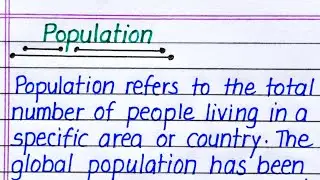 Population
Population refers to the total
number of people living in a
specific area or country. The
global population has been